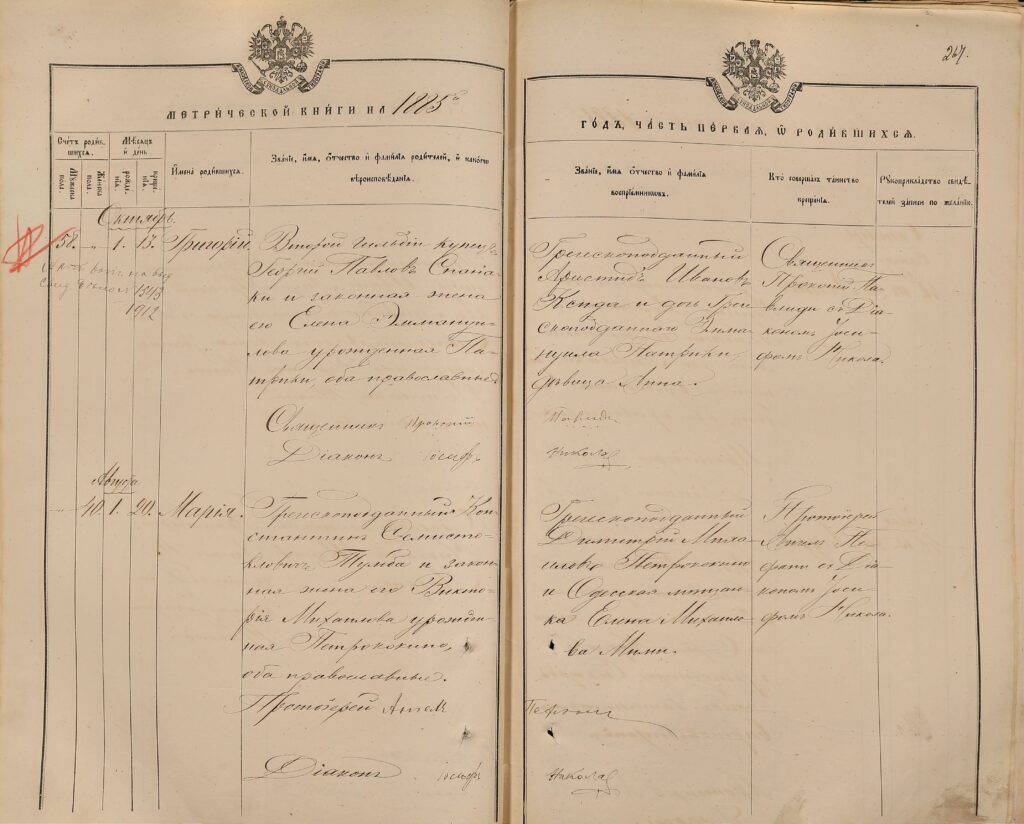 267.
МЕТРИЧЕСКОЙ КНИГИ НА 1885 г
ГОДЪ, ЧАСТЬ ПЕРВАЯ, Ѡ РОДИВШИХСЯ.
Счетъ родив-
шихся.
Мѣсяцъ
и день
Мужеска
пола.
Женска
пола.
рожде-
нія.
креще-
нія.
Имена родившихся.
Званіе, имя, отчество и фамилія родителей, и какого
вѣроисповѣданія.
Званіе, имя отчество и фамилія
воспріемниковъ.
Кто совершалъ таинство
крещенія.
Рукоприкладство свидѣ-
телей записи по желанію.
Октябрь.
58. „ 1. 13. Григорій.
1343
1912
Второй гильдіи купецъ
Георгій Павловъ Спанда-
ки и законная жена
его Елена Эммануи-
лова урожденная Па-
трики, оба православные
Священникъ Прокопій
Діаконъ Іосифъ
Грекоподданный
Аристидъ Ивановъ
Ксида и дочь Гре-
коподданнаго Эмма-
нуила Патрики,
дѣвица Анна.
Павлиди
Николаи
Священникъ
Прокопій Па-
влиди съ Діа-
кономъ Іоси-
фомъ Николаи
Августа
„ 40. 1. 20. Марія.
Грекоподданный Кон-
стантинъ Ѳемисто-
кловичъ Тумба и закон-
ная жена его Викто-
рія Михаилова урожден-
ная Петрококино,
оба православные.
Протоіерей
Діаконъ Іосифъ
Грекоподданный
Димитрій Миха-
иловъ Петрококино
и Одесская мѣщан-
ка Елена Михаило-
ва Мими.
Николаи
Протоіерей
съ Діа-
кономъ Іоси-
фомъ Николаи.